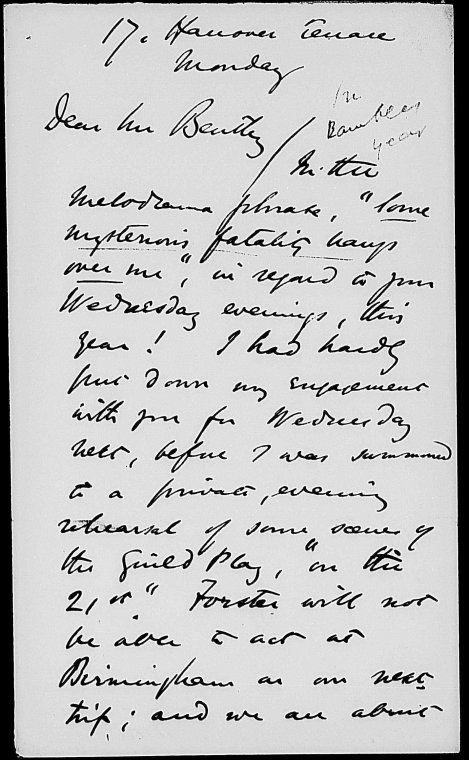 17, Hanover Terrace
Monday
Dear Mr Bentley
In the
melodrama phrase, "some
mysterious fatality hangs
over me", in regard to your
Wednesday evenings, this
year! I had hardly
put down my engagement
with you for Wednesday
next, before I was summoned
to a private, evening
rehearsal of some scenes of
the Guild Play, "on the
21st." Forster will not
be able to act at
Birmingham on our next
trip; and we are about